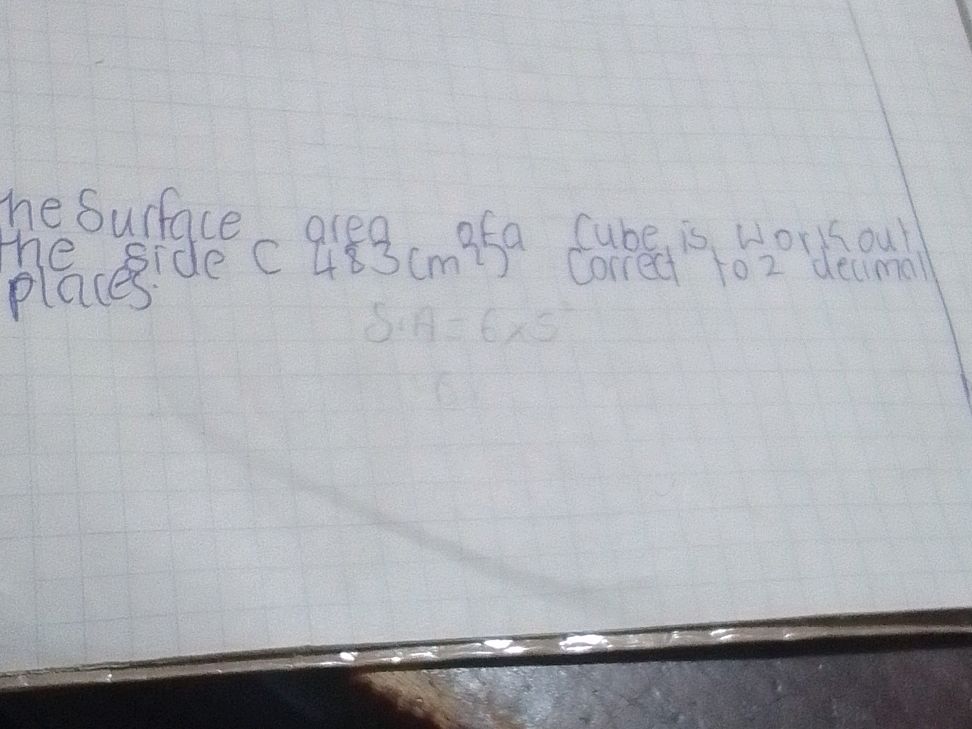 he Surface area of a Cube is work out
the side C 483cm²) Correct to 2 decimal
places.
S.A = 6 × S²
6